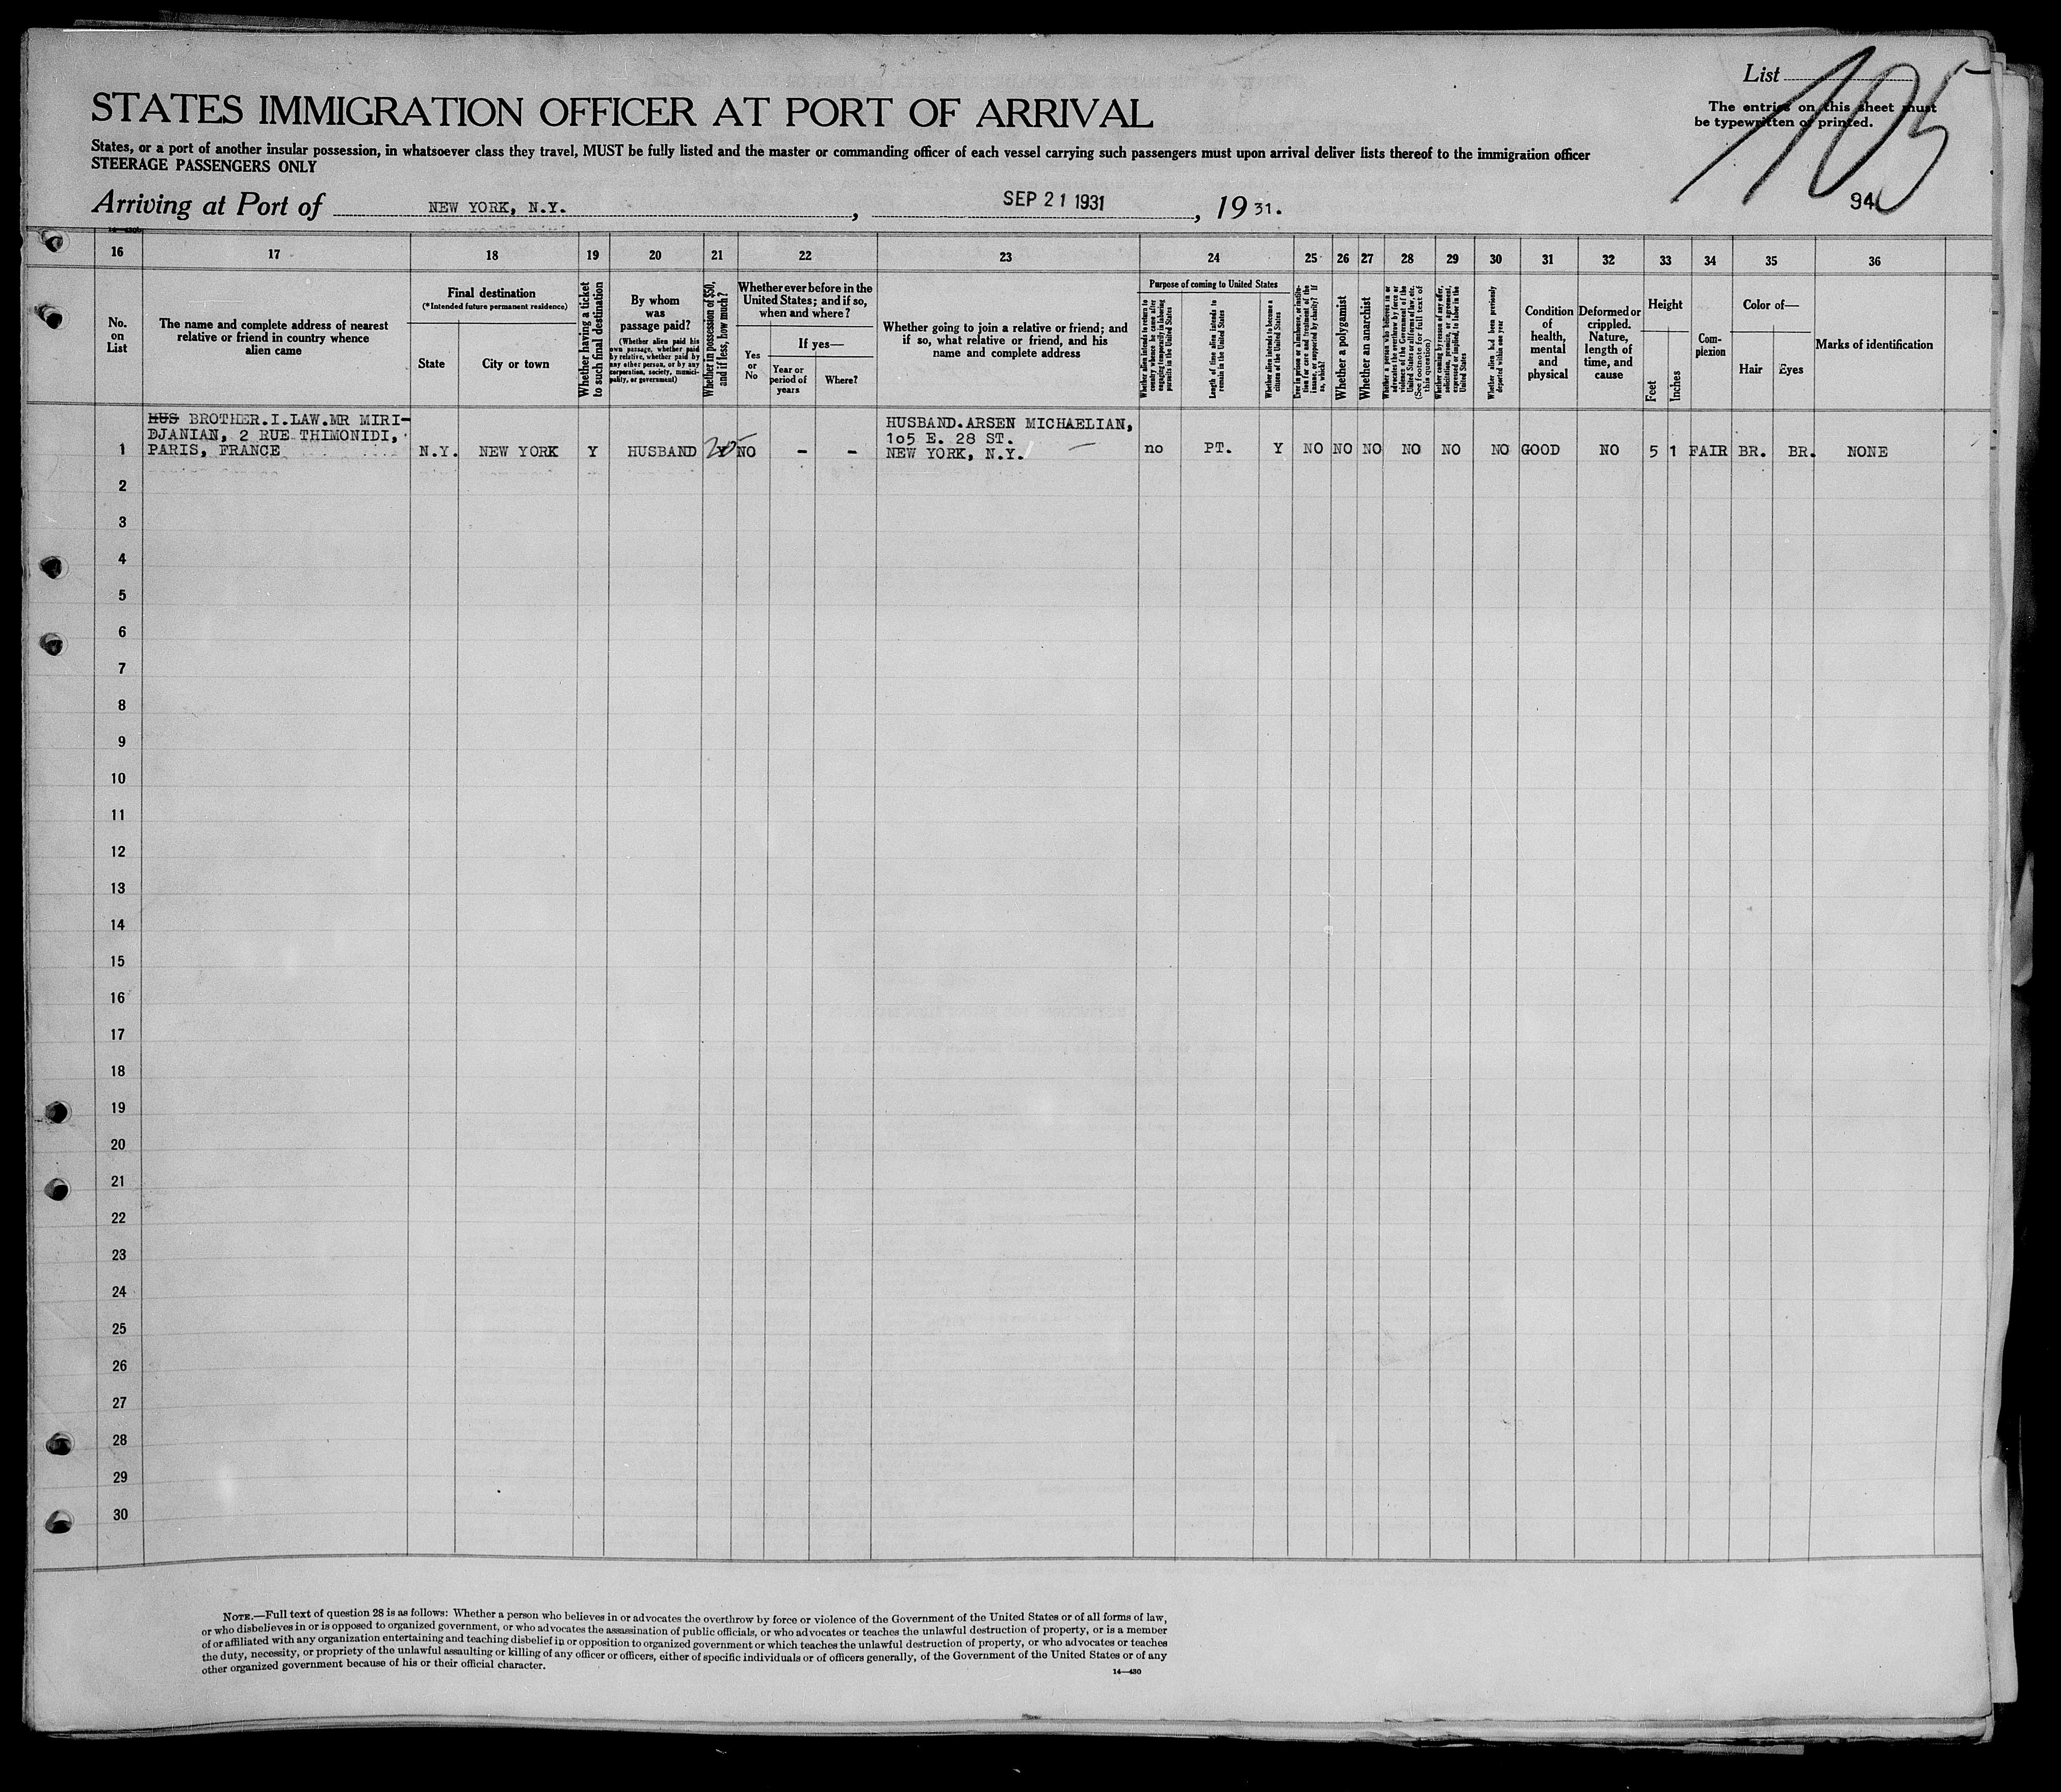 List
105
The entries on this sheet must
be typewritten or printed.
STATES IMMIGRATION OFFICER AT PORT OF ARRIVAL
States, or a port of another insular possession, in whatsoever class they travel, MUST be fully listed and the master or commanding officer of each vessel carrying such passengers must upon arrival deliver lists thereof to the immigration officer
STEERAGE PASSENGERS ONLY
Arriving at Port of NEW YORK, N.Y., SEP 21 1931, 19 31.
94
16 17 18 19 20 21 22 23 24 25 26 27 28 29 30 31 32 33 34 35 36
No.
on
List
The name and complete address of nearest
relative or friend in country whence
alien came
Final destination
(*Intended future permanent residence)
State
City or town
Whether having a ticket
to such final destination
By whom
was
passage paid?
(Whether alien paid his
own passage, whether paid
by relative, whether paid by
any other person, or by any
corporation, society, munici-
pality, or government)
Whether in possession of $50,
and if less, how much?
Whether ever before in the
United States; and if so,
when and where?
Yes
or
No
If yes—
Year or
period of
years
Where?
Whether going to join a relative or friend; and
if so, what relative or friend, and his
name and complete address
Purpose of coming to United States
Whether alien intends to return to
country whence he came after
engaging temporarily in laboring
pursuits in the United States
Length of time alien intends to
remain in the United States
Whether alien intends to become a
citizen of the United States
Ever in prison or almshouse, or institu-
tion for care and treatment of the
insane, or supported by charity? If
so, which?
Whether a polygamist
Whether an anarchist
Whether a person who believes in or
advocates the overthrow by force or
violence of the Government of the
United States or all forms of law, etc.
(See footnote for full text of
this question)
Whether coming by reason of any offer,
solicitation, promise, or agreement,
expressed or implied, to labor in the
United States
Whether alien had been previously
deported within one year
Condition
of
health,
mental
and
physical
Deformed or
crippled.
Nature,
length of
time, and
cause
Height
Feet
Inches
Com-
plexion
Color of—
Hair
Eyes
Marks of identification
HUS BROTHER.I.LAW.MR MIRI-
DJANIAN, 2 RUE THIMONIDI,
PARIS, FRANCE
1 N.Y. NEW YORK Y HUSBAND NO - -
HUSBAND.ARSEN MICHAELIAN,
105 E. 28 ST.
NEW YORK, N.Y.
no PT. Y NO NO NO NO NO NO GOOD NO 5 1 FAIR BR. BR. NONE
2
3
4
5
6
7
8
9
10
11
12
13
14
15
16
17
18
19
20
21
22
23
24
25
26
27
28
29
30
NOTE.—Full text of question 28 is as follows: Whether a person who believes in or advocates the overthrow by force or violence of the Government of the United States or of all forms of law,
or who disbelieves in or is opposed to organized government, or who advocates the assassination of public officials, or who advocates or teaches the unlawful destruction of property, or is a member
of or affiliated with any organization entertaining and teaching disbelief in or opposition to organized government or which teaches the unlawful destruction of property, or who advocates or teaches
the duty, necessity, or propriety of the unlawful assaulting or killing of any officer or officers, either of specific individuals or of officers generally, of the Government of the United States or of any
other organized government because of his or their official character.
14—430